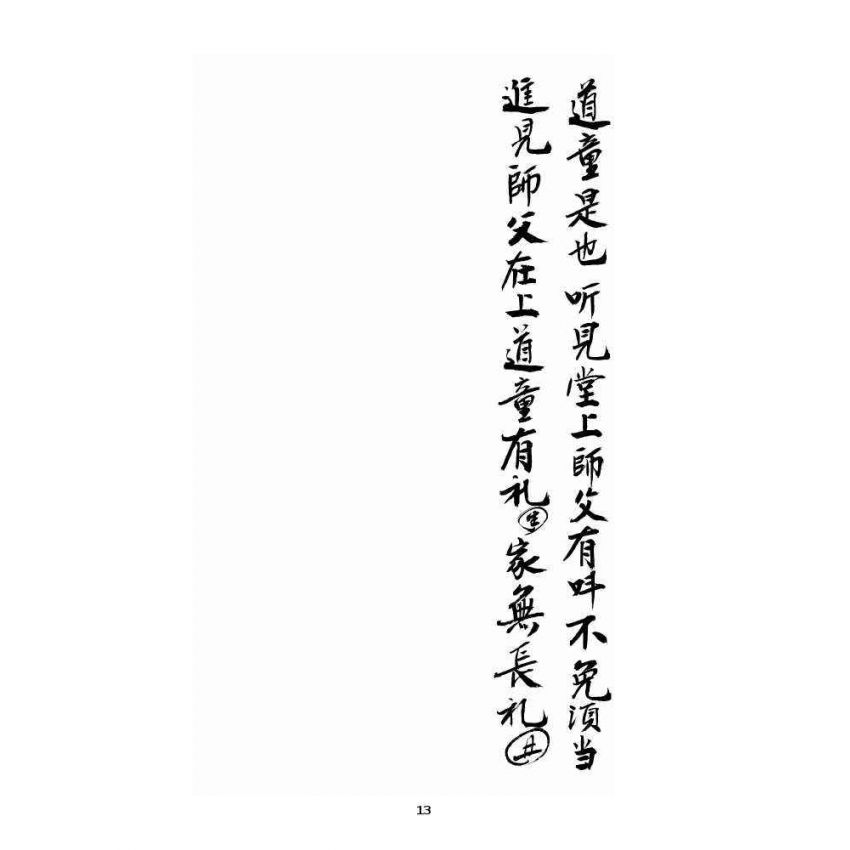 道童是也听見堂上師父有呌不免須当
進見師父在上道童有礼㊣生家無長礼丑
13